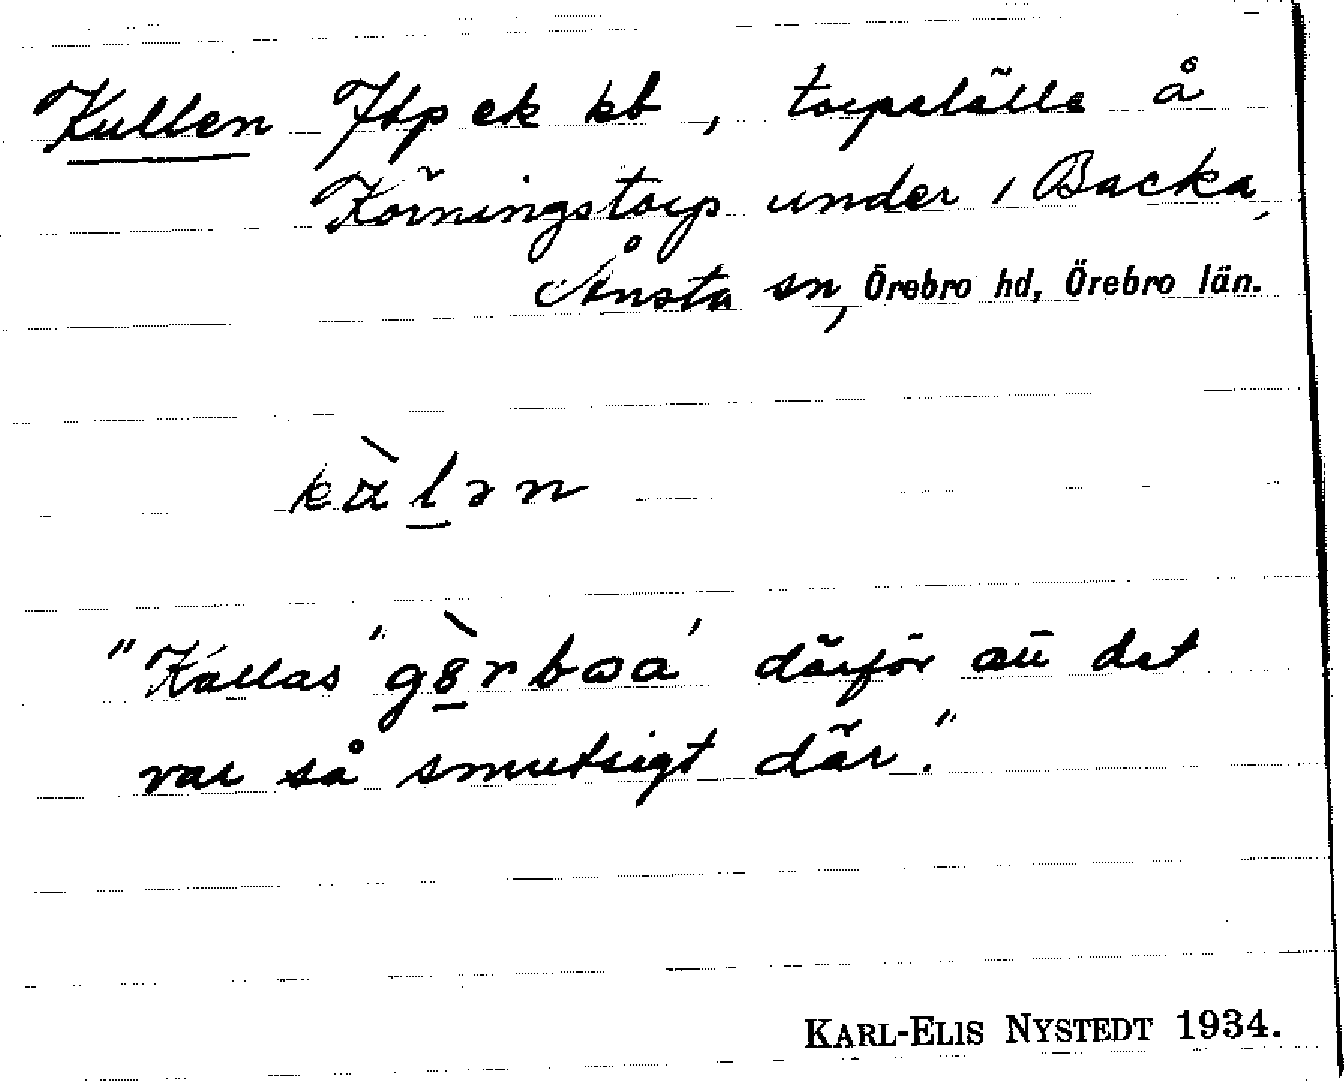 Kullen Jtp ek kb, torpställe å
Körningstorp under 1 Backa,
Ånsta sn, Örebro hd, Örebro län.
"Kallas" därför att det
var så smutsigt där."
KARL-ELIS NYSTEDT 1934.